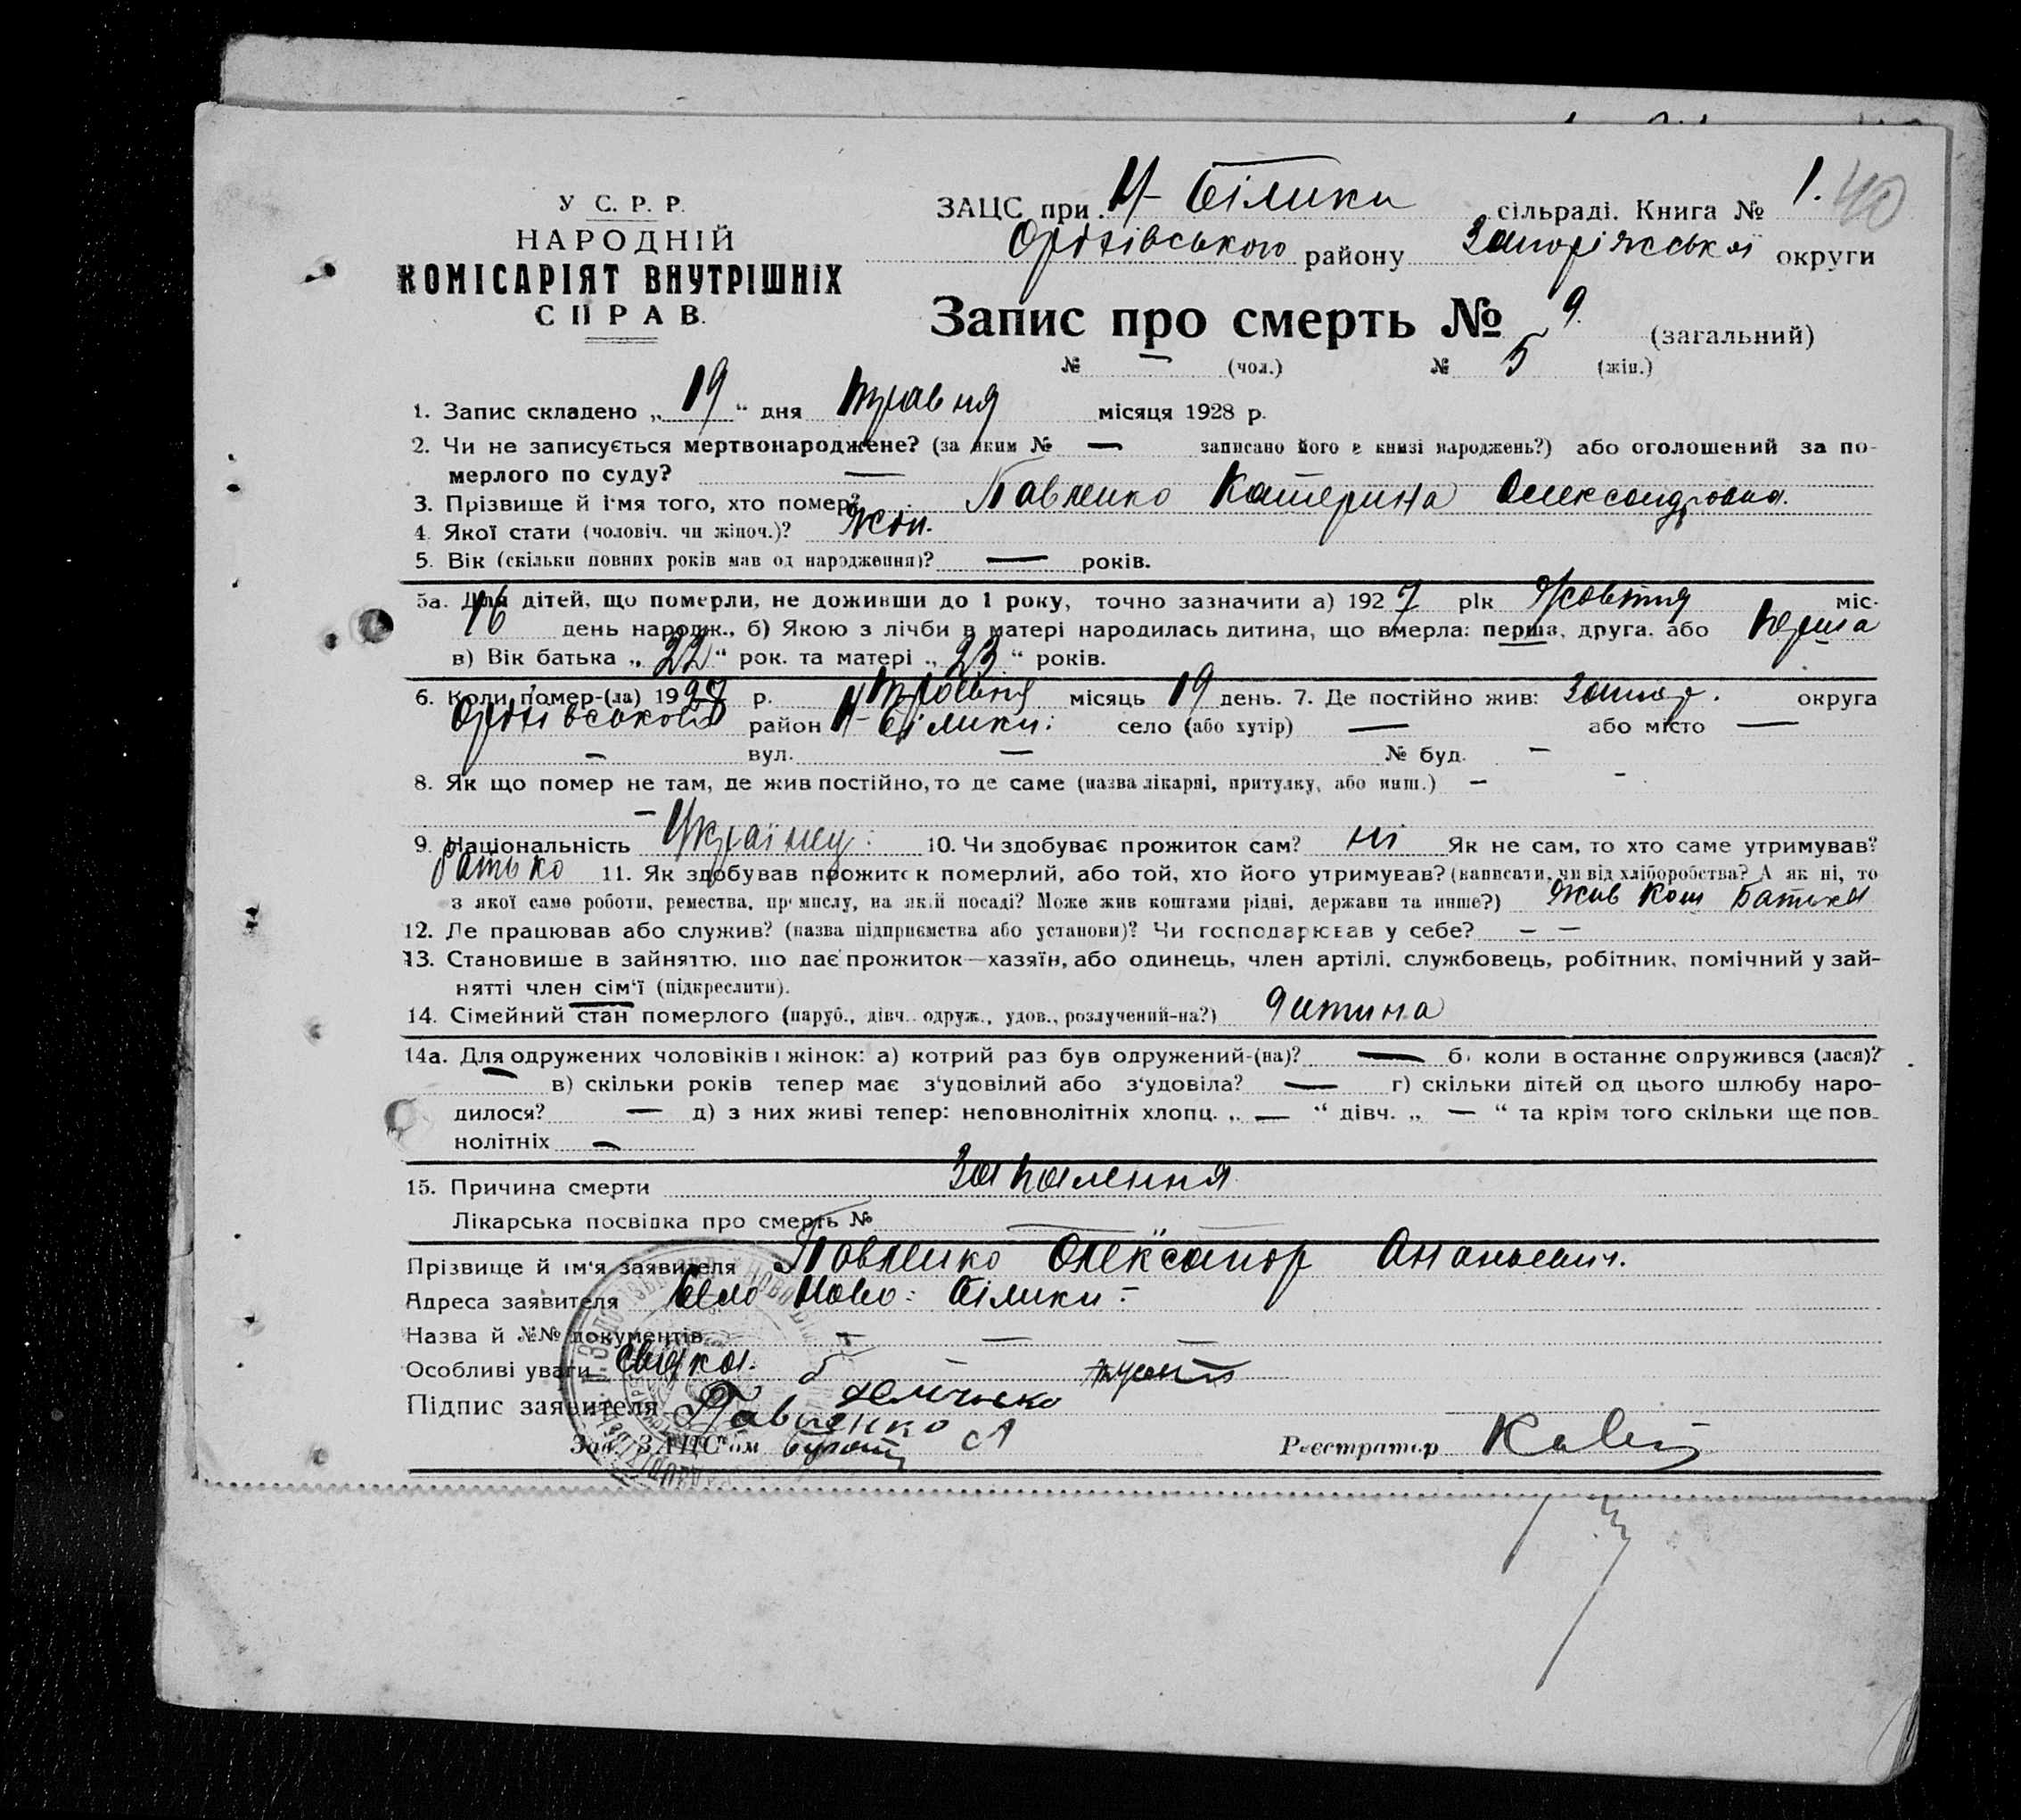 У С. Р. Р.
НАРОДНІЙ
КОМІСАРІЯТ ВНУТРІШНІХ
СПРАВ.
ЗАЦС при Н-Білики сільраді. Книга № 1. 40
Оріхівського району Запоріжської округи
Запис про смерть № 9. (загальний)
№ — (чол.) № 5 (жін.)
1. Запис складено „ 19 “ дня травня місяця 1928 р.
2. Чи не записується мертвонароджене? (за яким № — записано його в книзі народжень?) або оголошений за по-
мерлого по суду? —
3. Прізвище й ім'я того, хто помер? Павленко Катерина Олександровна.
4. Якої стати (чоловіч. чи жіноч.)? жін.
5. Вік (скільки повних років мав од народження)? — років.
5а. Для дітей, що померли, не доживши до 1 року, точно зазначити а) 1927 рік Жовтня міс.
16 день народж., б) Якою з лічби в матері народилась дитина, що вмерла: перша, друга, або перша
в) Вік батька „ 22 “ рок. та матері „ 23 “ років.
6. Коли помер-(ла) 19 р. травня місяць 19 день. 7. Де постійно жив: Запор. округа
район Н-Білики: село (або хутір) — або місто —
– вул. — № буд. –
8. Як що помер не там, де жив постійно, то де саме (назва лікарні, притулку, або инш.) – –
–
9. Національність Українц: 10. Чи здобуває прожиток сам? ні Як не сам, то хто саме утримував?
батько 11. Як здобував прожиток померлий, або той, хто його утримував? (написати, чи від хліборобства? А як ні, то
з якої саме роботи, ремества, промислу, на якій посаді? Може жив коштами рідні, держави та инше?) Жив кош батька
12. Де працював або служив? (назва підприємства або установи)? Чи господарював у себе? – –
13. Становище в зайняттю, що дає прожиток—хазяїн, або одинець, член артілі, службовець, робітник, помічний у зай-
нятті член сім'ї (підкреслити).
14. Сімейний стан померлого (паруб., дівч. одруж., удов., розлучений-на?) дитина
14а. Для одружених чоловіків і жінок: а) котрий раз був одружений-(на)? — б) коли в останнє одружився (лася)?
— в) скільки років тепер має з'удовілий або з'удовіла? — г) скільки дітей од цього шлюбу наро-
дилося? — д) з них живі тепер: неповнолітніх хлопц. „ — “ дівч. „ — “ та крім того скільки ще пов-
нолітніх —
15. Причина смерти Запалення
Лікарська посвідка про смерть № —
Прізвище й ім'я заявителя Павленко Олександр Ананьевич.
Адреса заявителя Село Ново-Білики
Назва й №№ документів – — —
Особливі уваги
Підпис заявителя Павленко
Зав. ЗАЦС'ом Реєстратор